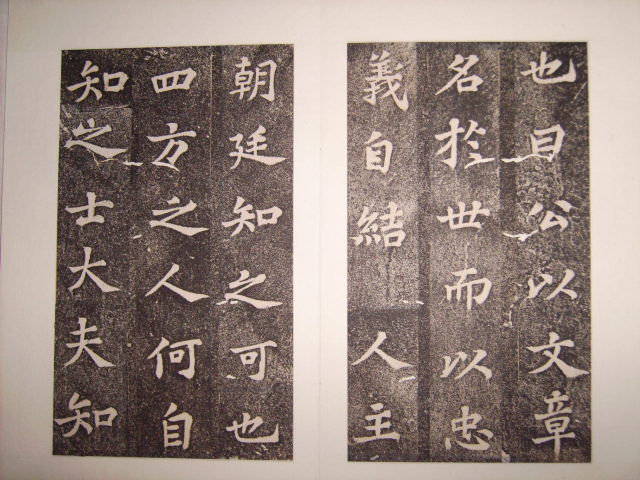 也曰公以文章
名於世而以忠
義自結人主
朝廷知之可也
四方之人何自
知之士大夫知